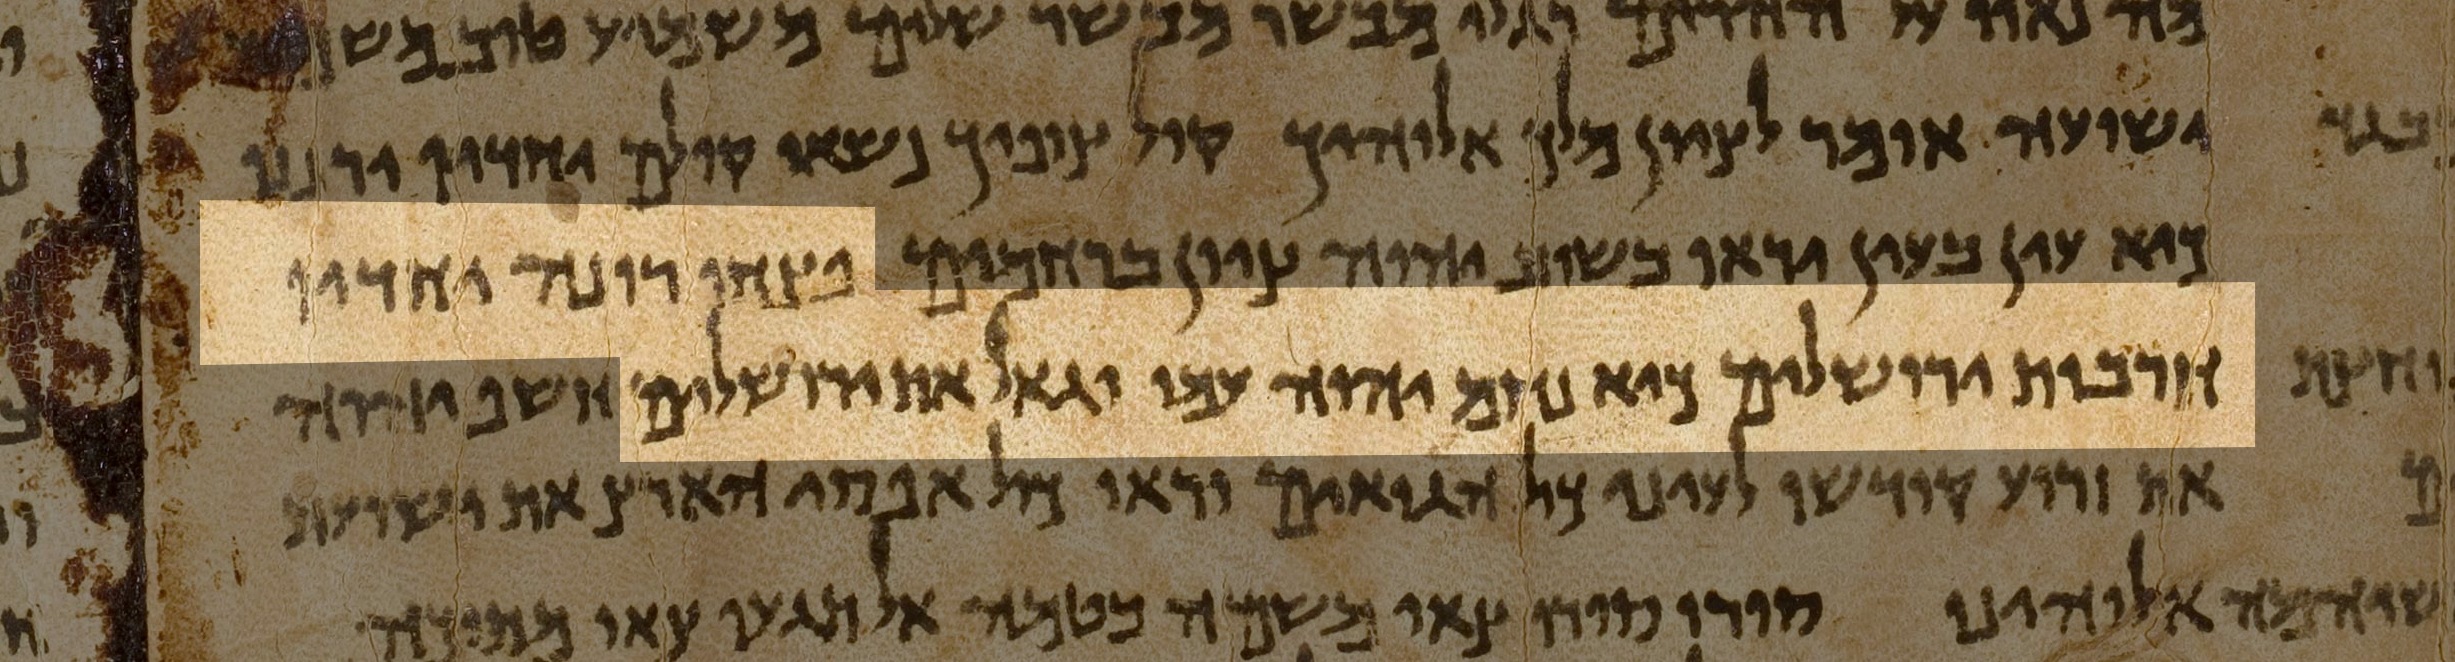 מה נאוו על ההרים רגלי מבשר מבשר שלום משמיע טוב משמיע
ישועה אומר לציון מלך אלוהיך קול צופיך נשאו קולם יחדיו ירננו
כיא עין בעין יראו בשוב יהוה ציון ברחמים פצחו רונה יחדיו
חרבות ירושלים כיא נחם יהוה עמו וגאל את ירושלים חשף יהוה
את זרוע קודשו לעיני כול הגואים ויראו כול אפסי הארץ את ישועת
אלוהינו סורו סורו צאו משמה בטמה אל תגעו צאו מתוכה